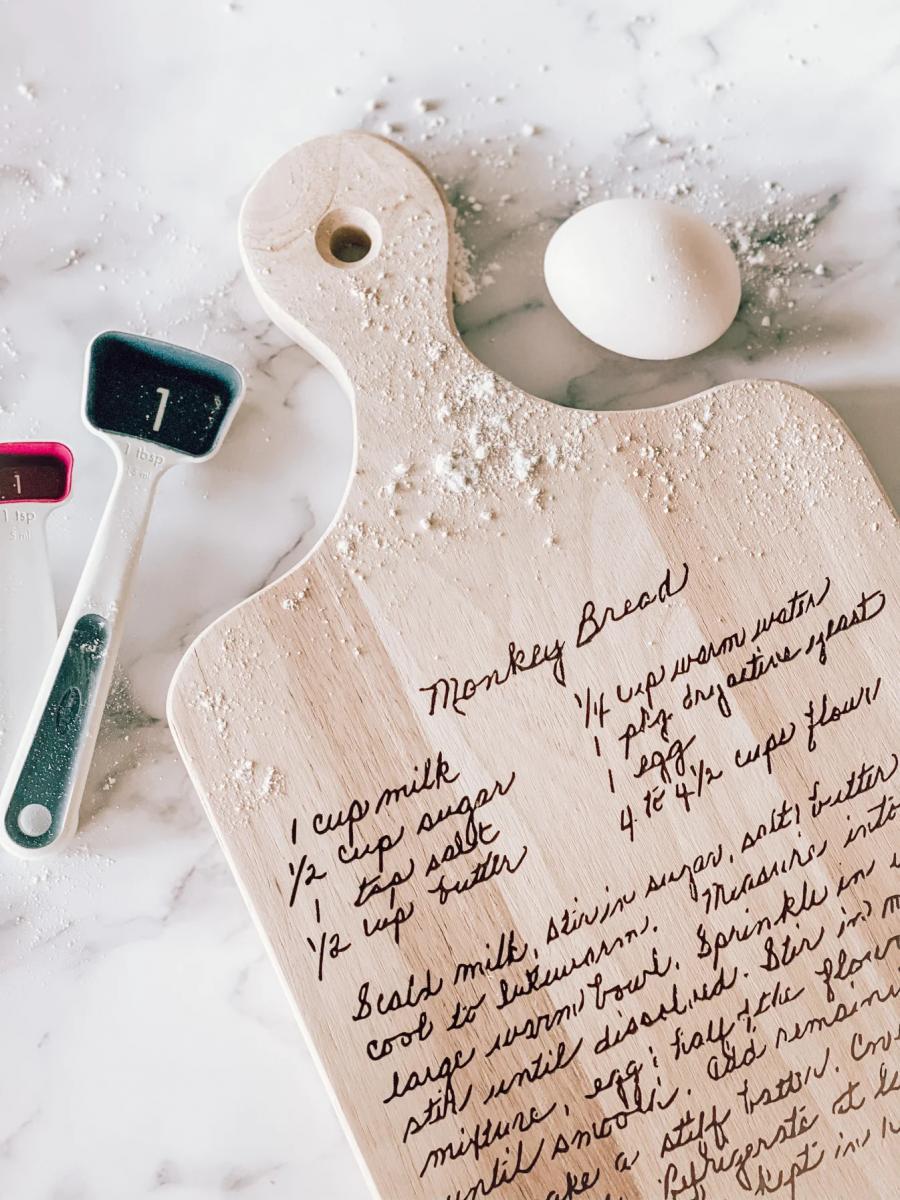 1
1 tbsp
15 ml
1
1 tsp
5 ml
Monkey Bread
1 cup milk
1/2 cup sugar
1 tsp salt
1/2 cup butter
1/4 cup warm water
1 pkg dry active yeast
1 egg
4 to 4 1/2 cups flour
Scald milk, stir in sugar, salt, butter
cool to lukewarm. Measure into
large warm bowl. Sprinkle in
stir until dissolved. Stir in
mixture, egg, half the flour
until smooth. Add
a stiff batter.
Refrigerate at
kept in